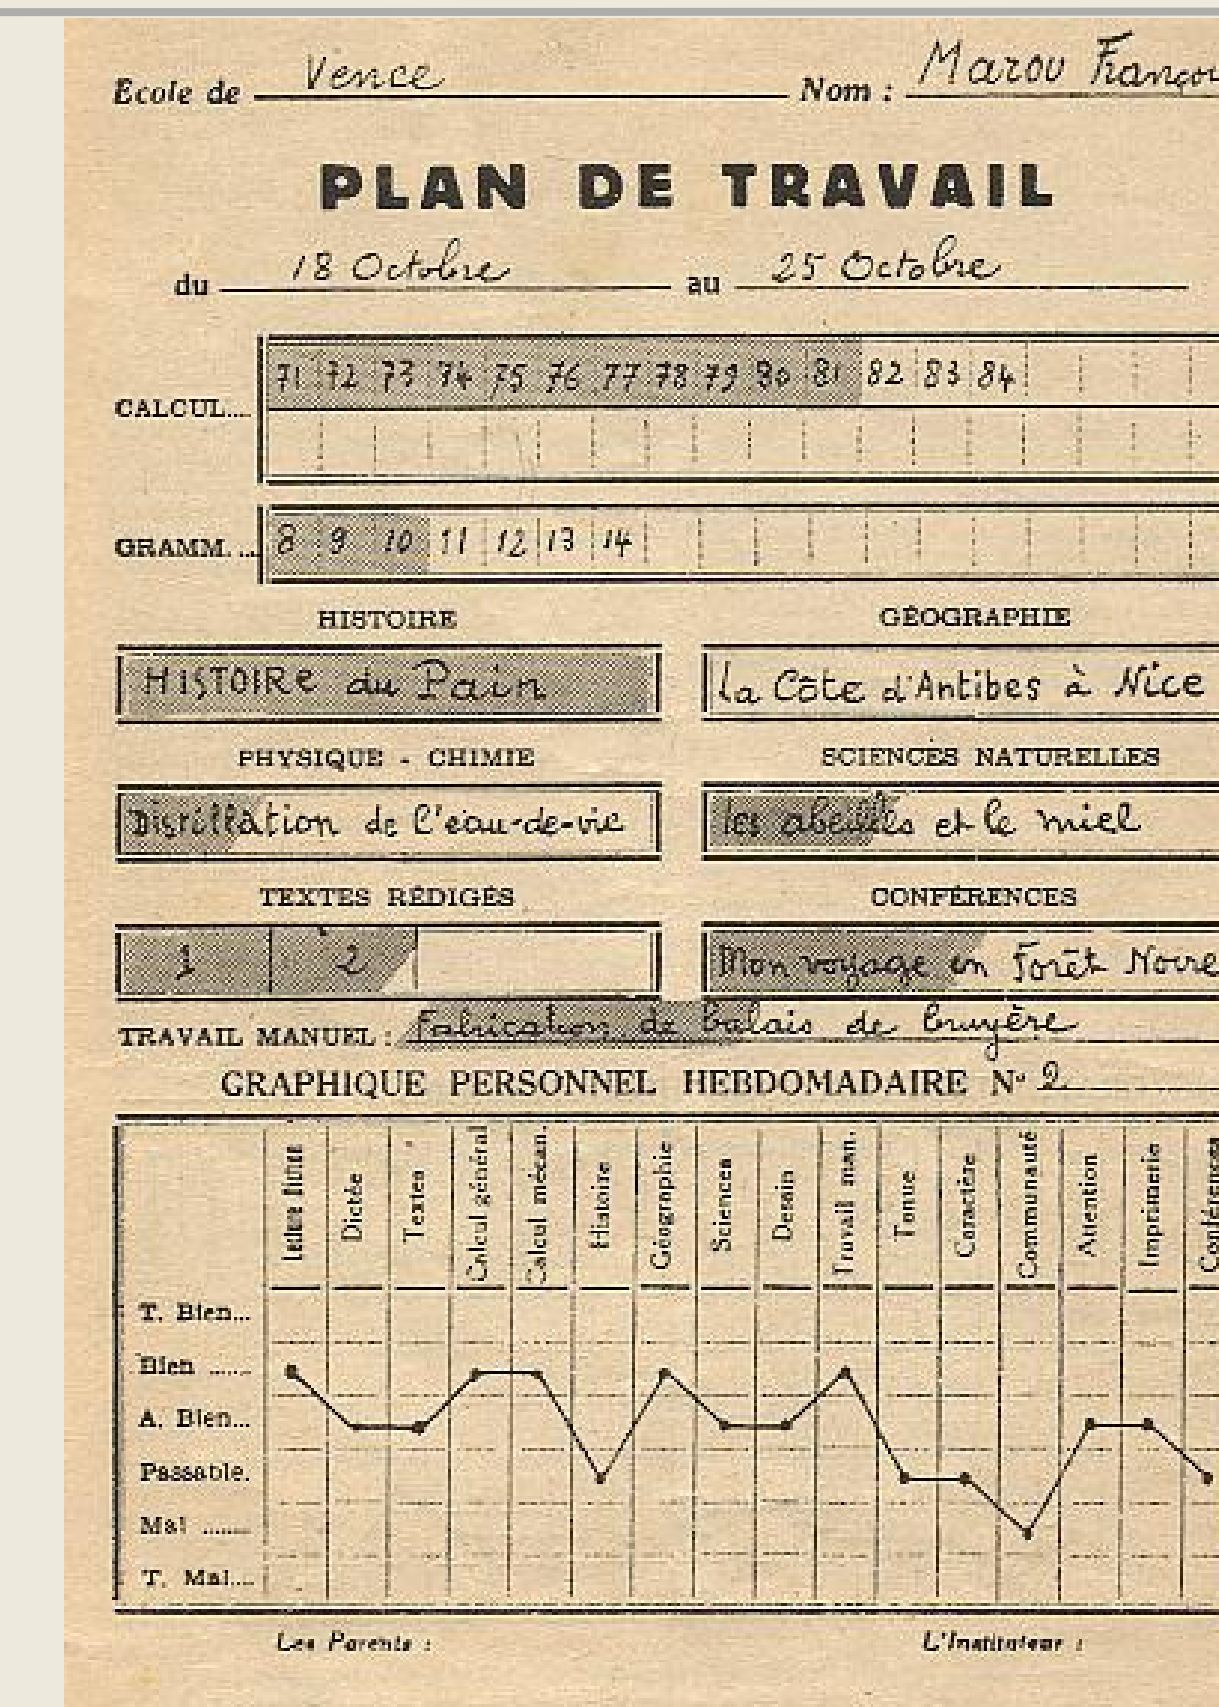 Ecole de Vence Nom : Marou Françoi
PLAN DE TRAVAIL
du 18 Octobre au 25 Octobre
71 72 73 74 75 76 77 78 79 80 81 82 83 84
CALCUL....
GRAMM. ... 8 9 10 11 12 13 14
HISTOIRE GÉOGRAPHIE
HISTOIRE du Pain la Côte d'Antibes à Nice
PHYSIQUE - CHIMIE SCIENCES NATURELLES
Distillation de l'eau-de-vie les abeilles et le miel
TEXTES RÉDIGÉS CONFÉRENCES
1 2 Mon voyage en Forêt Noire
TRAVAIL MANUEL : Fabrication de balais de bruyère
GRAPHIQUE PERSONNEL HEBDOMADAIRE N° 2
Dictée Textes Calcul général Calcul mécan. Histoire Géographie Sciences Dessin Travail man. Tenue Caractère Communauté Attention Imprimerie Conférences
T. Bien...
Bien .......
A. Bien...
Passable.
Mal .......
T. Mal....
Les Parents : L'Instituteur :